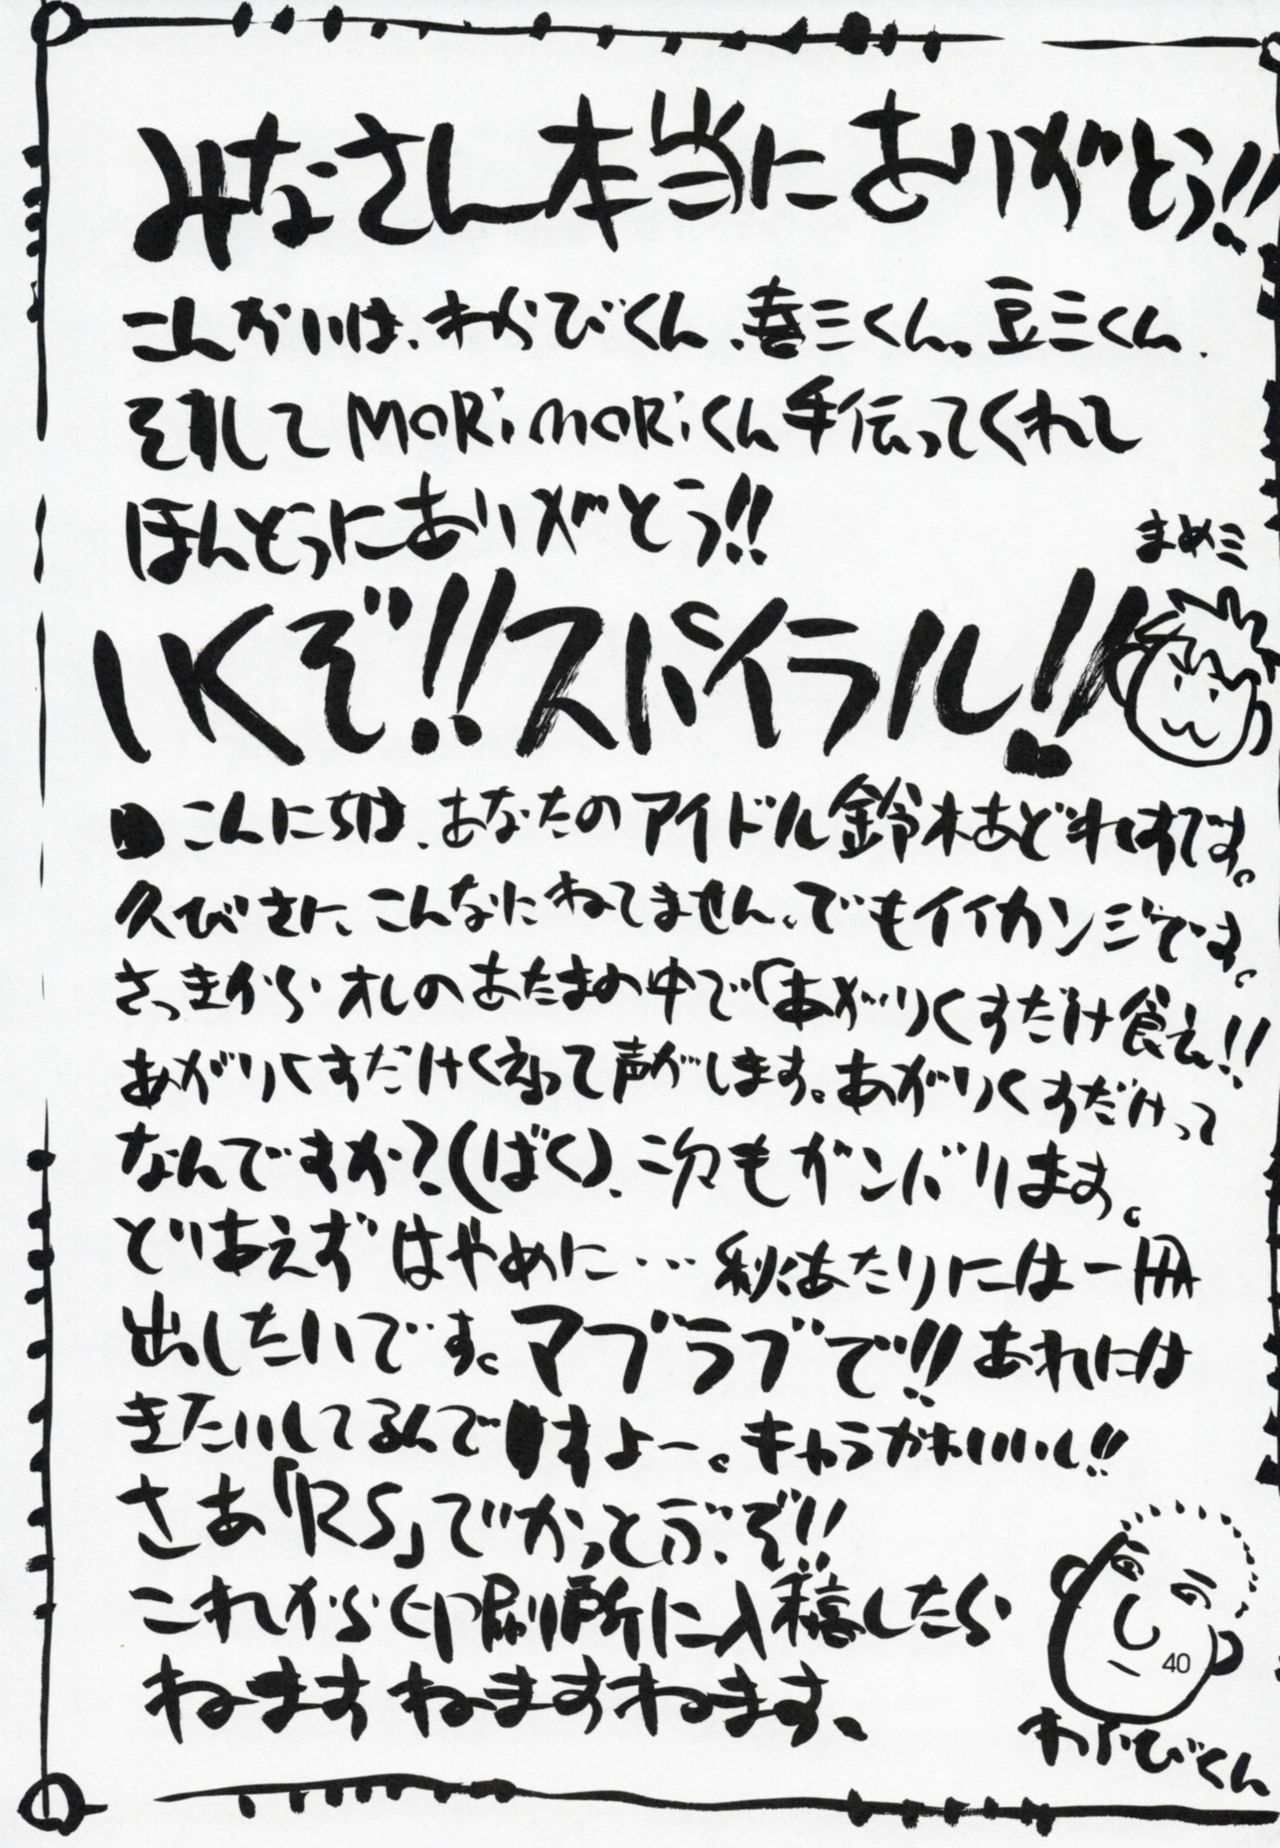 みなさん本当にありがとう!!
こんかいは、わらびくん、喜三くん。豆三くん、
そして MORiMORiくん手伝ってくれて
ほんとうにありがとう!!
まめミ
いくぞ!!スパイラル!!
こんにちは、あなたのアイドル鈴木あどれすです。
久びさに、こんなにねてません、でもイイカンジです。
さっきから オレのあたまの中で「あがりくすだけ食え!!
あがりくすだけくえって声がします。あがりくすだけって
なんですか?(ばく)、次もガンバります。
とりあえず はやめに… 秋あたりには一冊
出したいです。マブラブで!!あれには
きたいしてるんですよー。キャラかわいいし!!
さあ「RS」でかっとぶぞ!!
これから印刷所に入稿したら
ねます ねますねます、
40
わらびくん